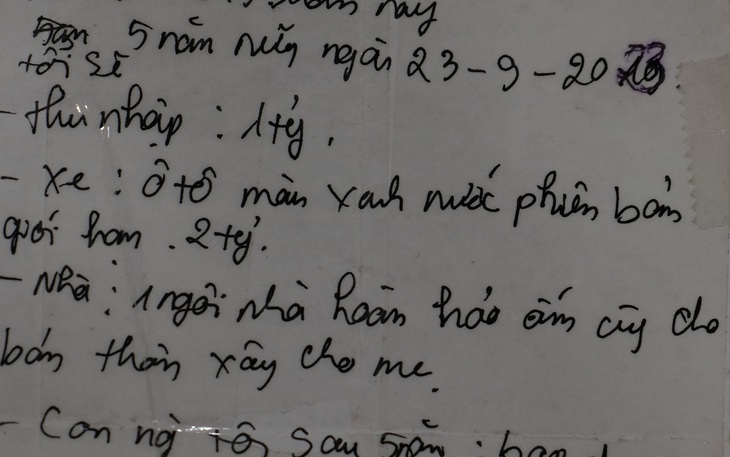 này
5 năm nữa ngày 23-9-20
tôi sẽ
- thu nhập : 1 tỷ.
- Xe : Ô tô màu xanh nước phiên bản
giới hạn . 2 tỷ.
- Nhà : 1 ngôi nhà hoàn hảo ấm cúng cho
bản thân xây cho mẹ.
- Con người tôi sau 5 năm :